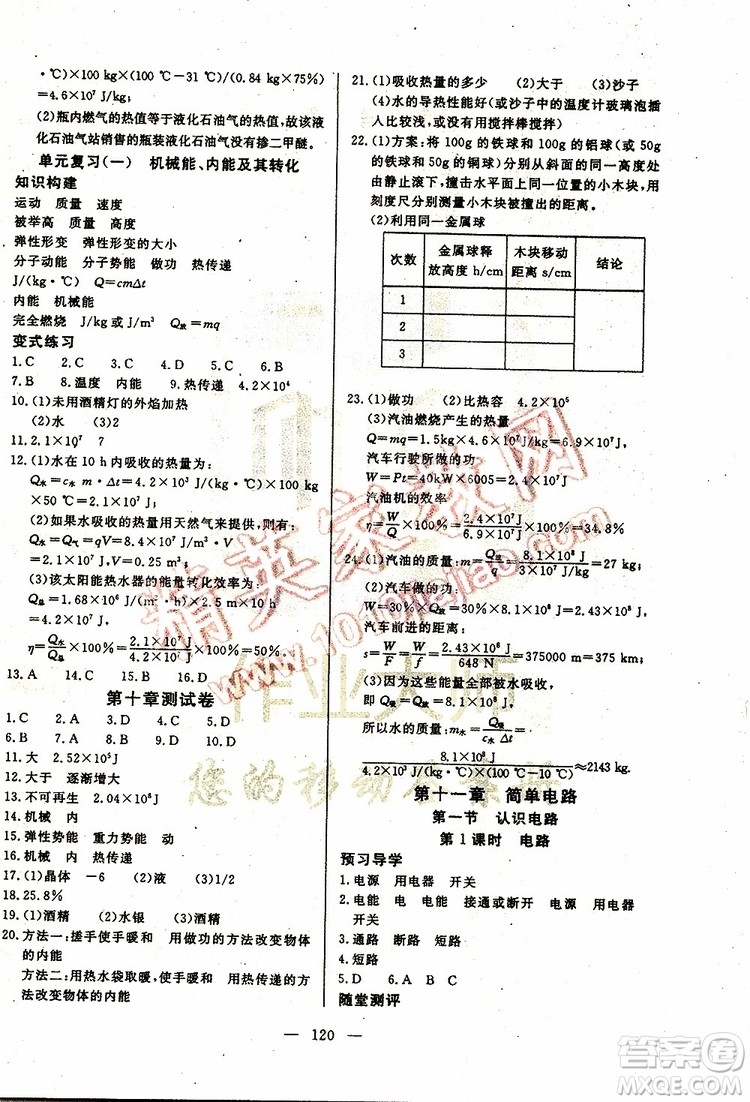 ·℃)×100 kg×(100 ℃－31 ℃)/(0.84 kg×75%)
＝4.6×10⁷ J/kg;
(2)瓶内燃气的热值等于液化石油气的热值,故该液
化石油气站销售的瓶装液化石油气没有掺二甲醚.
单元复习(一) 机械能、内能及其转化
知识构建
运动 质量 速度
被举高 质量 高度
弹性形变 弹性形变的大小
分子动能 分子势能 做功 热传递
J/(kg·℃) Q＝cmΔt
内能 机械能
完全燃烧 J/kg或J/m³ Q放＝mq
变式练习
1.C 2.C 3.C 4.D 5.C 6.C
7.B 8.温度 内能 9.热传递 4.2×10⁴
10.(1)未用酒精灯的外焰加热
(2)水 (3)2
11.2.1×10⁷ 7
12.(1)水在 10 h 内吸收的热量为:
Q水＝c水mΔt＝4.2×10³ J/(kg·℃)×100 kg
×50 ℃＝2.1×10⁷ J;
(2)如果水吸收的热量用天然气来提供,则有:
Q水＝Q放＝Q气＝qV＝8.4×10⁷ J/m³×V
＝2.1×10⁷ J,V＝0.25 m³;
(3)该太阳能热水器的能量转化效率为:
Q总＝1.68×10⁶ J/(m²·h)×2.5 m×10 h
＝4.2×10⁷ J
η＝Q水/Q总×100%＝2.1×10⁷ J/4.2×10⁷ J×100%＝50%.
13.A 14.A 15.C 16.B
第十章测试卷
1.C 2.A 3.D 4.D 5.C
6.B 7.B 8.D 9.C 10.D
11.大 2.52×10⁵
12.大于 逐渐增大
13.不可再生 2.04×10⁸ J
14.机械 内
15.弹性势能 重力势能 动
16.机械 内 热传递
17.(1)晶体 －6 (2)液 (3)1/2
18.25.8%
19.(1)酒精 (2)水银 (3)酒精
20.方法一:搓手使手暖和 用做功的方法改变物体
的内能
方法二:用热水袋取暖,使手暖和 用热传递的方
法改变物体的内能
21.(1)吸收热量的多少 (2)大于 (3)沙子
(4)水的导热性能好(或沙子中的温度计玻璃泡插
入比较浅,或没有用搅拌棒搅拌)
22.(1)方案:将 100g 的铁球和 100g 的铝球(或 50g
的铁球和 50g 的铜球)分别从斜面的同一高度处
由静止滚下,撞击水平面上同一位置的小木块,用
刻度尺分别测量小木块被撞出的距离。
(2)利用同一金属球
次数 金属球释放高度 h/cm 木块移动距离 s/cm 结论
1
2
3
23.(1)做功 (2)比热容 4.2×10⁵
(3)汽油燃烧产生的热量
Q＝mq＝1.5kg×4.6×10⁷J/kg＝6.9×10⁷J
汽车行驶所做的功
W＝Pt＝40kW×600S＝2.4×10⁷J
汽油机的效率
η＝W/Q×100%＝2.4×10⁷J/6.9×10⁷J×100%＝34.8%
24.(1)汽油的质量:m＝Q放/q＝8.1×10⁸ J/3×10⁷ J/kg＝27 kg;
(2)汽车做的功:
W＝30%×Q放＝30%×8.1×10⁸ J＝2.43×10⁸ J
汽车前进的距离:
s＝W/F＝W/f＝2.43×10⁸ J/648 N＝375000 m＝375 km;
(3)因为这些能量全部被水吸收,
即 Q吸＝Q放＝8.1×10⁸ J
所以水的质量:m水＝Q吸/c水Δt＝
8.1×10⁸ J/4.2×10³ J/(kg·℃)×(100 ℃－10 ℃)≈2143 kg.
第十一章 简单电路
第一节 认识电路
第 1 课时 电路
预习导学
1.电源 用电器 开关
2.电能 电 电能 接通或断开 电源 用电器
开关
3.通路 断路 短路
4.短路
5.D 6.A B C
随堂测评
— 120 —
精英家教网
www.1010jiajiao.com
作业大师
您的移动答案库
答案圈
MXQE.COM